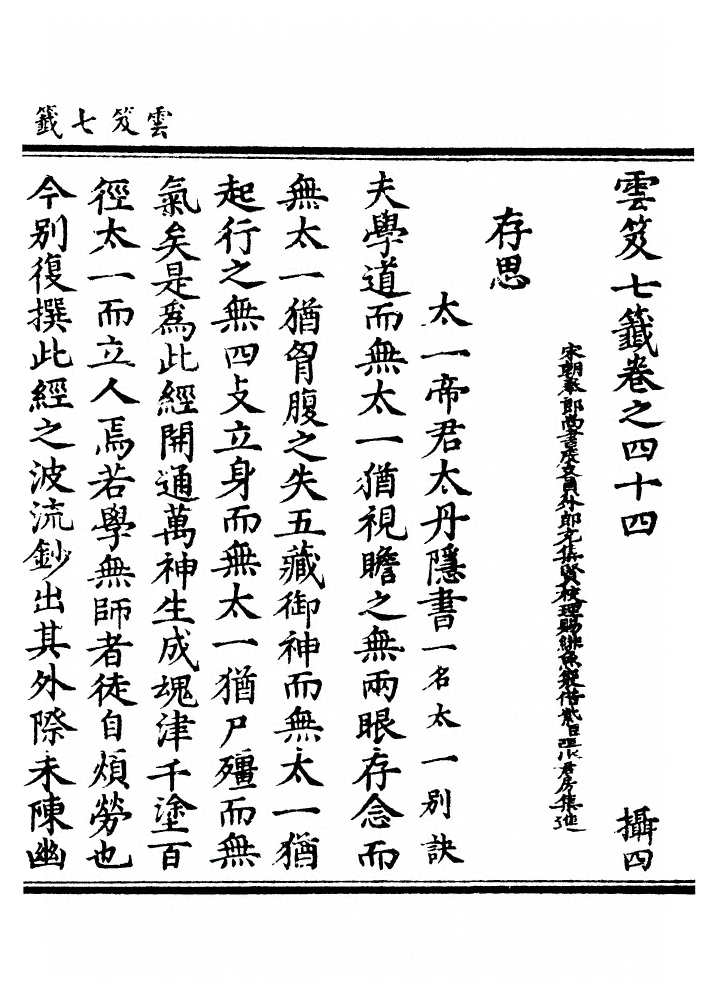 雲笈七籤
雲笈七籤卷之四十四 攝四
宋朝奉郎尚書度支員外郎充集賢校理賜緋魚袋借紫臣張君房集進
存思
太一帝君太丹隱書一名太一別訣
夫學道而無太一猶視瞻之無兩眼存念而
無太一猶胷腹之失五藏御神而無太一猶
起行之無四攴立身而無太一猶尸殭而無
氣矣是爲此經開通萬神生成魂津千塗百
徑太一而立人焉若學無師者徒自煩勞也
今別復撰此經之波流鈔出其外際未陳幽